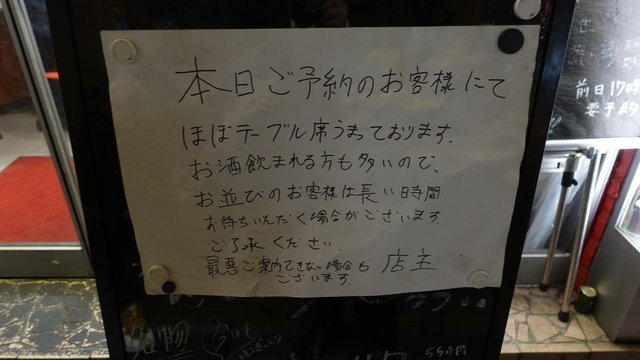 本日ご予約のお客様にて
ほぼテーブル席うまっております。
お酒飲まれる方も多いので、
お並びのお客様は長い時間
お待ちいただく場合がございます。
ご了承ください。
最悪ご案内できない場合も
ございます。
店主
前日17時
要予約
名物